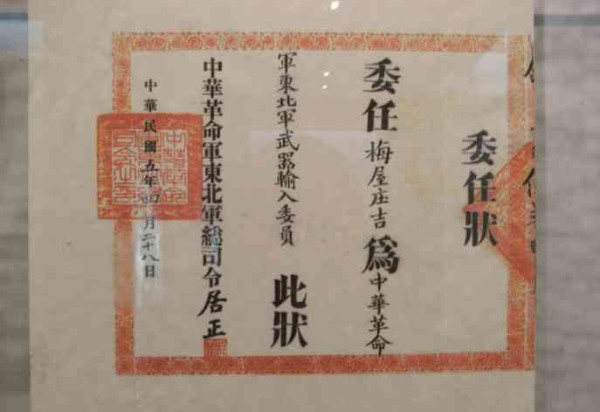 委任狀
委任梅屋庄吉爲中華革命
軍東北軍武器輸入委員
此狀
中華革命軍東北軍總司令居正
中華民國五年四月二十八日